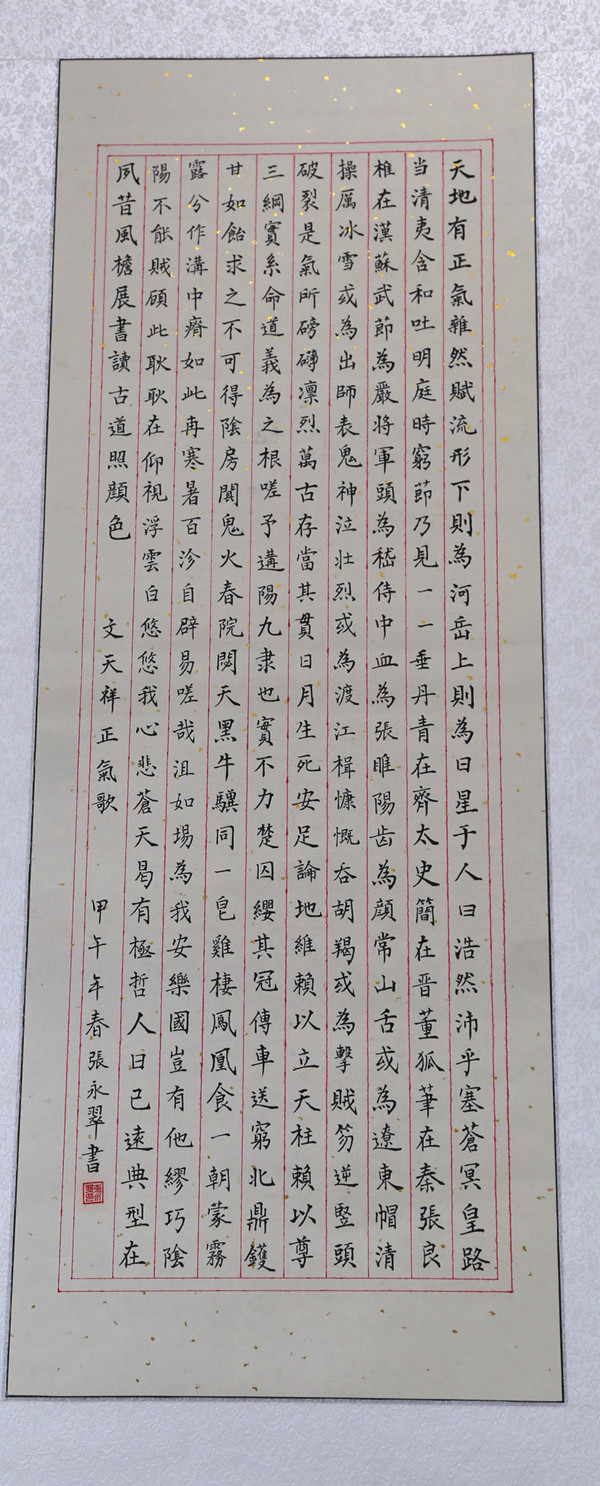 天地有正氣雜然賦流形下則為河岳上則為日星于人曰浩然沛乎塞蒼冥皇路
当清夷含和吐明庭時窮節乃見一一垂丹青在齊太史簡在晋董狐筆在秦張良
椎在漢蘇武節為嚴將軍頭為嵇侍中血為張睢陽齿為顔常山舌或為遼東帽清
操厲冰雪或為出師表鬼神泣壮烈或為渡江楫慷慨吞胡羯或為擊賊笏逆竪頭
破裂是氣所磅礴凛烈萬古存當其貫日月生死安足論地維賴以立天柱賴以尊
三綱實系命道義為之根嗟予遘陽九隶也實不力楚囚纓其冠傳車送窮北鼎鑊
甘如飴求之不可得陰房閴鬼火春院閟天黑牛驥同一皂雞棲鳳凰食一朝蒙霧
露分作溝中瘠如此再寒暑百沴自辟易嗟哉沮如場為我安樂國豈有他繆巧陰
陽不能賊顾此耿耿在仰視浮雲白悠悠我心悲蒼天曷有極哲人日已遠典型在
夙昔風檐展書讀古道照顔色 文天祥正氣歌 甲午年春張永翠書